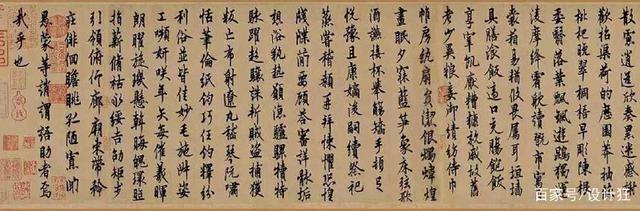 散慮逍遙欣奏累遣慼謝
歡招渠荷的歷園莽抽條
枇杷晚翠梧桐早凋陳根
委翳落葉飄颻遊鵾獨運
凌摩絳霄耽讀翫市寓目
囊箱易輶攸畏屬耳垣墻
具膳飡飯適口充腸飽飫
享宰飢厭糟糠親戚故舊
老少異粮妾御績紡侍巾
帷房紈扇圓潔銀燭煒煌
晝眠夕寐藍笋象床弦歌
酒讌接杯舉觴矯手頓足
悅豫且康嫡後嗣續祭祀
蒸嘗稽顙再拜悚懼恐惶
牋牒簡要顧答審詳骸垢
想浴執熱願涼驢騾犢特
駭躍超驤誅斬賊盜捕獲
叛亡布射遼丸嵇琴阮嘯
恬筆倫紙鈞巧任釣釋紛
利俗並皆佳妙毛施淑姿
工嚬妍笑年矢每催羲暉
朗曜琁璣懸斡晦魄環照
指薪脩祜永綏吉劭矩步
引領俯仰廊廟束帶矜
莊徘徊瞻眺孤陋寡聞
愚蒙等誚謂語助者焉
哉乎也
百家号/设计狂